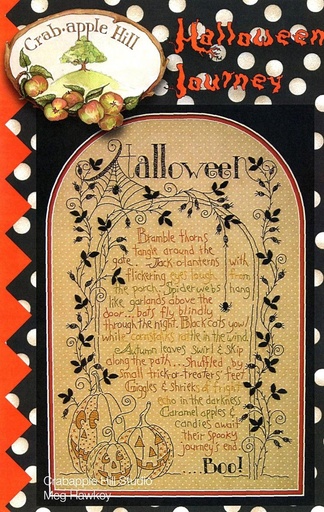 Crab·apple Hill
Halloween
Journey
Halloween
Bramble thorns
tangle around the
gate... Jack-o-lanterns with
flickering eyes laugh from
the porch. Spiderwebs hang
like garlands above the
door... bats fly blindly
through the night. Black cats yowl
while cornstalks rattle in the wind.
Autumn leaves swirl & skip
along the path... Shuffled by
small trick-or-treaters' feet.
Giggles & shrieks of fright
echo in the darkness.
Caramel apples &
candies await
their spooky
journey's end...
...Boo!
Crabapple Hill Studio
Meg Hawkey